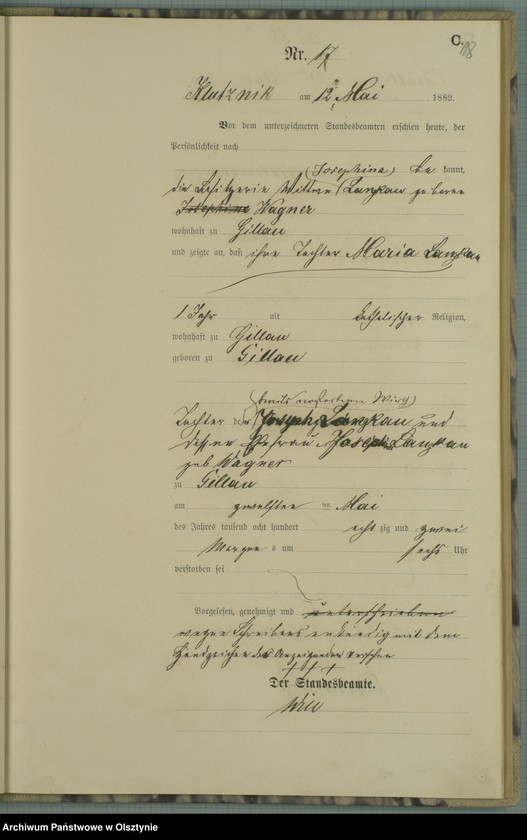 C.
18
Nr. 17
Klutznik am 12n Mai 1882.
Vor dem unterzeichneten Standesbeamten erschien heute, der
Persönlichkeit nach
(Josephina) be kannt,
die Besitzerin Wittwe Lanzkau geborne
Josephine Wagner
wohnhaft zu Gillau
und zeigte an, daß ihre Tochter Maria Lanzkau
1 Jahr alt katholischer Religion,
wohnhaft zu Gillau
geboren zu Gillau
(bereits verstorbenen Wirth)
Tochter des Joseph Lanzkau und
dessen Ehefrau Lanzkau
geb Wagner
zu Gillau
am zwölften Mai
des Jahres tausend acht hundert acht zig und zwei
Morgens um sechs Uhr
verstorben sei
Vorgelesen, genehmigt und unterschrieben
wegen Schreibens unkundig mit dem
Handzeichen des Anzeigenden versehen
+ + +
Der Standesbeamte.
Archiwum Państwowe w Olsztynie